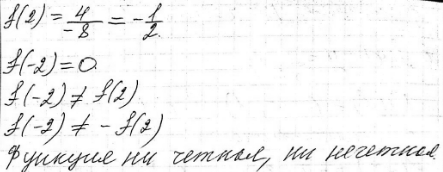 f(2) = 4/-8 = -1/2
f(-2) = 0.
f(-2) ≠ f(2)
f(-2) ≠ - f(2)
Функция ни четная, ни нечетная